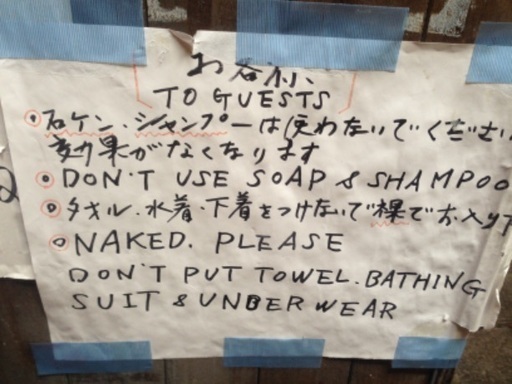 お客様、
TO GUESTS
石ケン、シャンプーは使わないでください
効果がなくなります
DON'T USE SOAP & SHAMPOO
タオル、水着、下着をつけないで裸でお入り下
NAKED. PLEASE
DON'T PUT TOWEL. BATHING
SUIT & UNDER WEAR